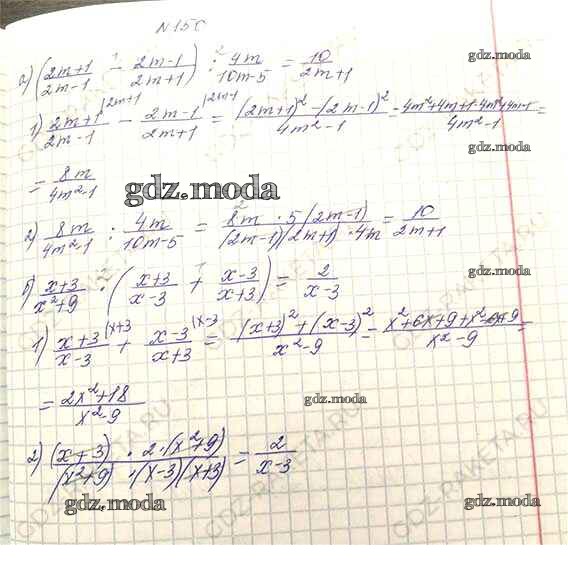 N 150
а) ((2m+1)/(2m-1) - (2m-1)/(2m+1)) : 4m/(10m-5) = 10/(2m+1)
gdz.moda
1) (2m+1)/(2m-1) |2m+1 - (2m-1)/(2m+1) |2m-1 = ((2m+1)² - (2m-1)²)/(4m²-1) = (4m²+4m+1-4m²+4m-1)/(4m²-1) =
gdz.moda
= 8m/(4m²-1)
gdz.moda
2) 8m/(4m²-1) : 4m/(10m-5) = (8m · 5(2m-1))/((2m-1)(2m+1) · 4m) = 10/(2m+1)
б) (x+3)/(x²+9) · ((x+3)/(x-3) + (x-3)/(x+3)) = 2/(x-3)
gdz.moda
1) (x+3)/(x-3) |x+3 + (x-3)/(x+3) |x-3 = ((x+3)² + (x-3)²)/(x²-9) = (x²+6x+9+x²-6x+9)/(x²-9) =
= (2x²+18)/(x²-9)
gdz.moda
2) ((x+3) · 2 · (x²+9))/((x²+9) · (x-3)(x+3)) = 2/(x-3)
gdz.moda
gdz.moda
GDZ-RAKETA.RU
GDZ-RAKETA.RU